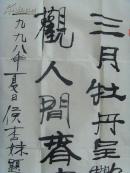 三月牡丹呈艳
觀人間春
一九九八年夏日侯吉妹題